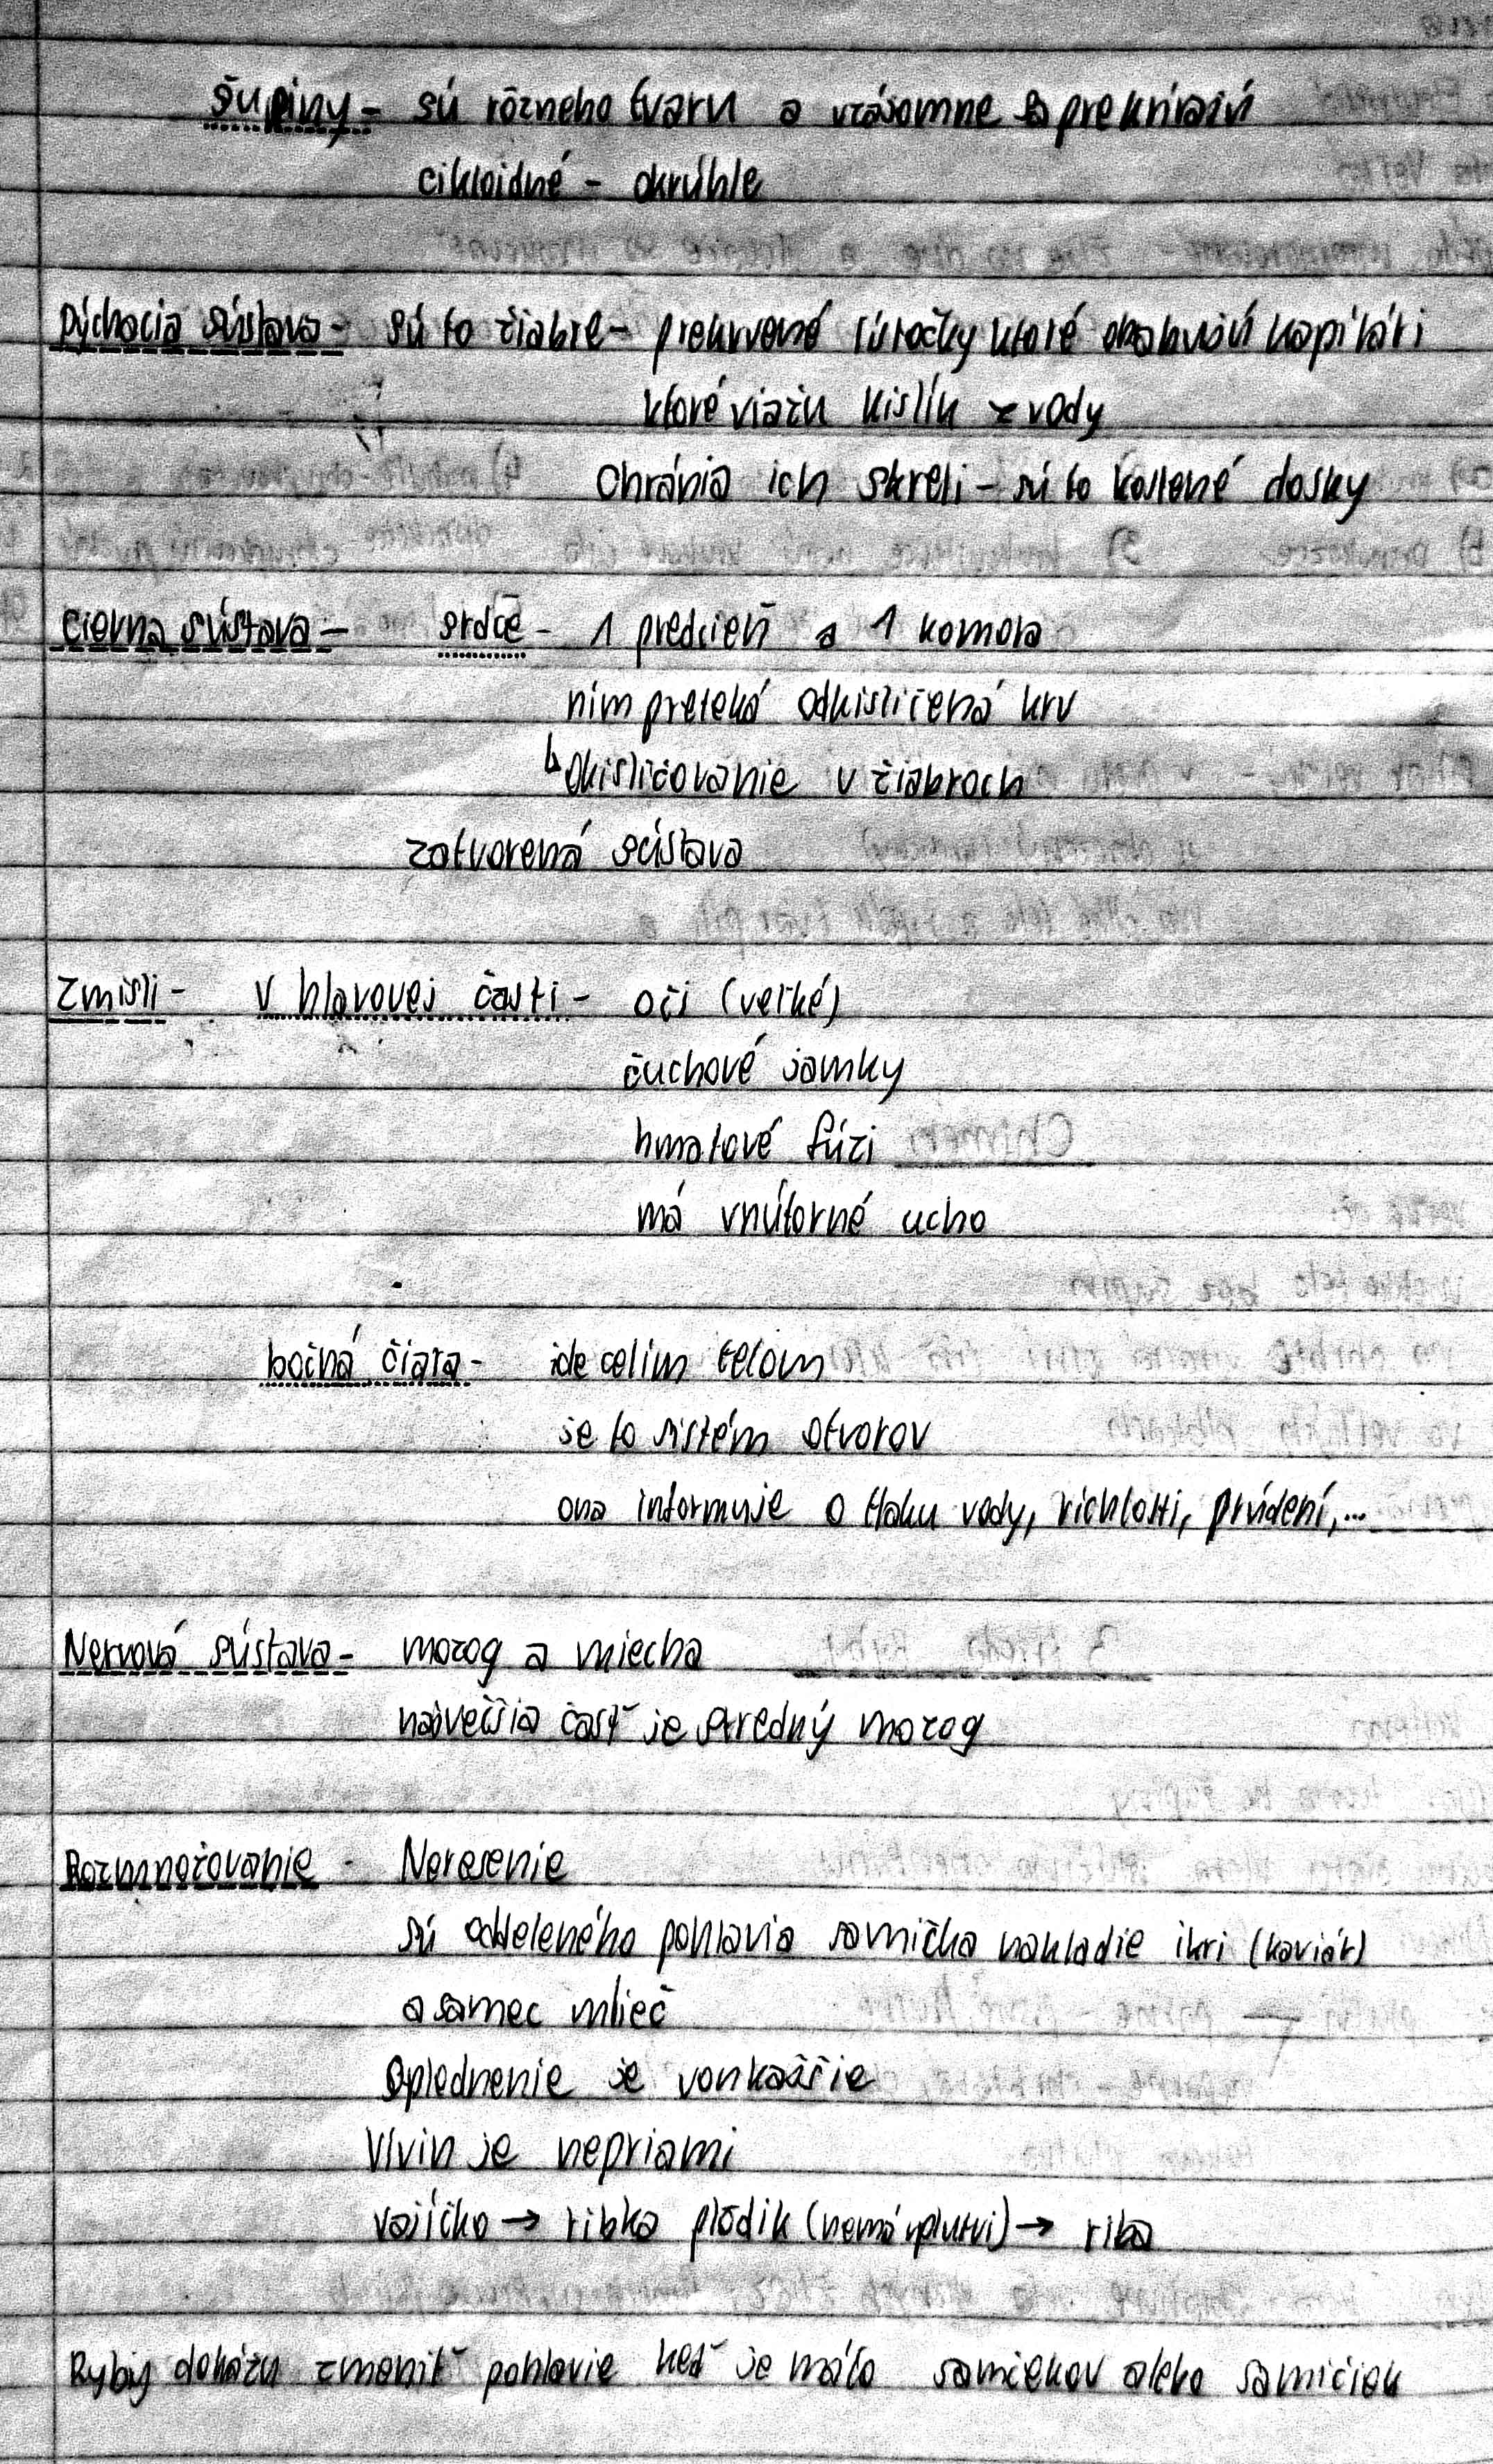 šupiny - sú rôzneho tvaru a vzájomne sa prekrívajú
cikloidné - okrúhle
Dýchacia sústava - sú to žiabre - prekrvené rúročky ktoré obaľujú kapilári
ktoré viažu kislík z vody
Chránia ich skreli - sú to kostené dosky
cievna sústava - srdce - 1 predcieň a 1 komora
ním preteká odkisličená krv
↳ Okisličovanie v žiabroch
zatvorená sústava
Zmisli - v hlavovej časti - oči (veľké)
čuchové jamky
hmatové fúzi
má vnútorné ucho
bočná čiara - ide celím telom
je to sistém otvorov
ona informuje o tlaku vody, richlosti, prúdení,...
Nervová sústava - mozog a miecha
največšia časť je stredný mozog
Rozmnožovanie - Neresenie
sú oddeleného pohlavia samička nakladie ikri (kaviár)
a samec mlieč
Oplodnenie je vonkajšie
Vívin je nepriami
vajíčko → ribka plôdik (nemá plutvi) → riba
Ryby dokážu zmeniť pohlavie keď je málo samčekov alebo samičiek